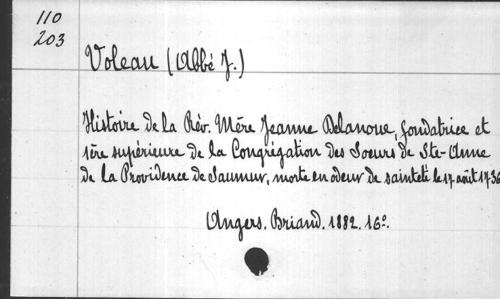 110
203
Voleau (Abbé J.)
Histoire de la Rév. Mère Jeanne Delanoue, fondatrice et
1ère supérieure de la Congrégation des Soeurs de Ste-Anne
de la Providence de Saumur, morte en odeur de sainteté le 17 août 1736
Angers. Briand. 1882. 16°.